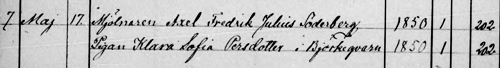 7 Maj 17. Mjölnaren Axel Fredrik Julius Söderberg, 1850 1 202
Pigan Klara Sofia Persdotter i Björkeqvarn 1850 1 202